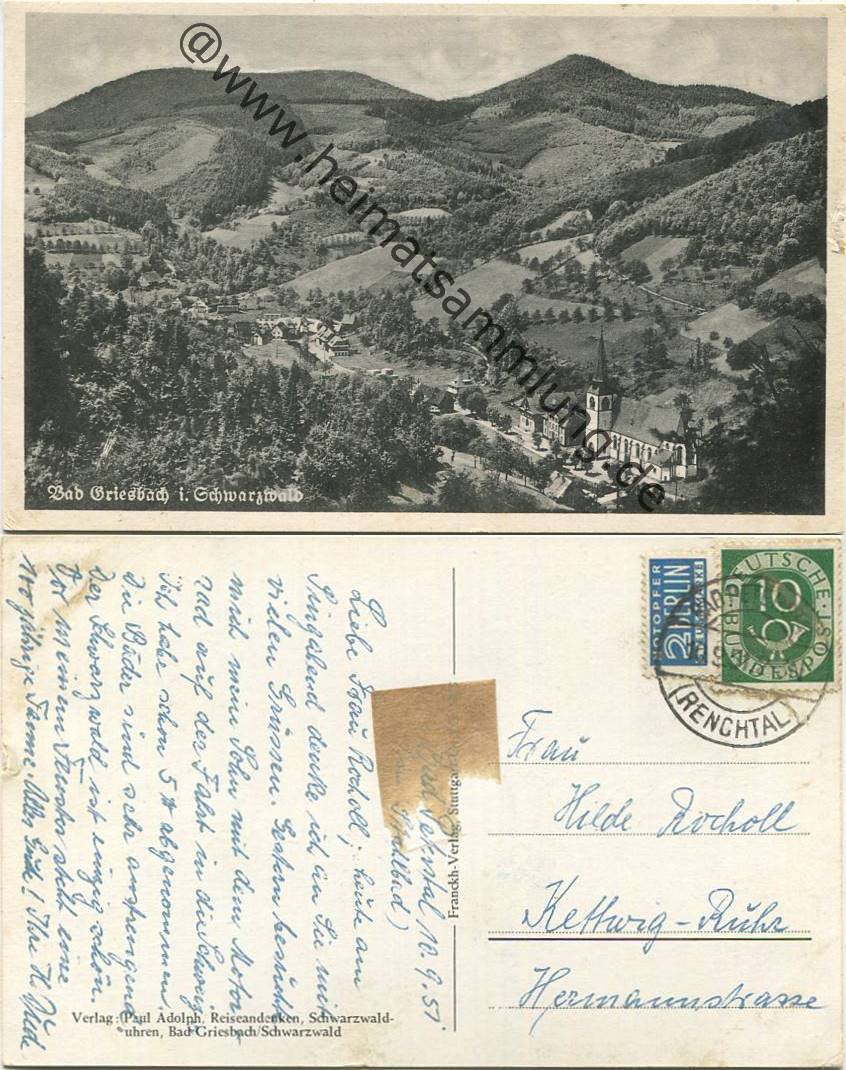 @www.heimatsammlung.de
Bad Griesbach i. Schwarzwald
NOTOPFER
2 BERLIN
STEUERMARKE
DEUTSCHE
10
BUNDESPOST
(RENCHTAL)
10.9.51
Liebe Frau Rocholl, heute am
Singabend denke ich an Sie mit
vielen Grüssen. Gestern besuchte
mich mein Sohn mit dem Motor-
rad auf der Fahrt in die Schweiz.
Ich habe schon 5 ℔ abgenommen,
die Bäder sind sehr anstrengend.
Der Schwarzwald ist einzig schön.
Vor meinem Fenster steht eine
100 jährige Tanne. Alles Gute! Ihre H.
Franckh-Verlag, Stuttgart
Frau
Hilde Rocholl
Kettwig-Ruhr
Hermannstrasse
Verlag: Paul Adolph, Reiseandenken, Schwarzwald-
uhren, Bad Griesbach/Schwarzwald